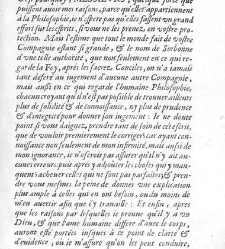 pourquoy, MESSIEURS, quelque force que
puissent auoir mes raisons, parce qu'elles appartiennent
à la Philosophie, ie n'espere pas qu'elles fassent vn grand
effort sur les esprits, si vous ne les prenez en vostre prote-
ction. Mais l'estime que tout le monde fait de vostre
Compagnie estant si grande, & le nom de Sorbonne
d'vne telle authorité, que non seulement en ce qui re-
garde la Foy, apres les sacrez Conciles, on n'a iamais
tant deferé au iugement d'aucune autre Compagnie,
mais aussi en ce qui regarde l'humaine Philosophie,
chacun croyant qu'il n'est pas possible de trouuer ailleurs
plus de solidité & de connoissance, ny plus de prudence
& d'integrité pour donner son iugement: Ie ne doute
point si vous daignez prendre tant de soin de cét escrit,
que de vouloir premierement le corriger; car ayant con-
noissance non seulement de mon infirmité, mais aussi de
mon ignorance, ie n'oserois pas asseurer qu'il n'y ait au-
cunes erreurs; puis aprés y adiouter les choses qui y man-
quent, acheuer celles qui ne sont pas parfaites, & pren-
dre vous mesmes la peine de donner vne explication
plus ample à celles qui en ont besoin, ou du moins de
m'en auertir afin que i'y trauaille: Et enfin, apres
que les raisons par lesquelles ie prouue qu'il y a vn
Dieu, & que l'ame humaine differe d'auec le corps,
auront esté portées iusques à ce point de clarté &
d'euidence, où ie m'asseure qu'on les peut conduire,